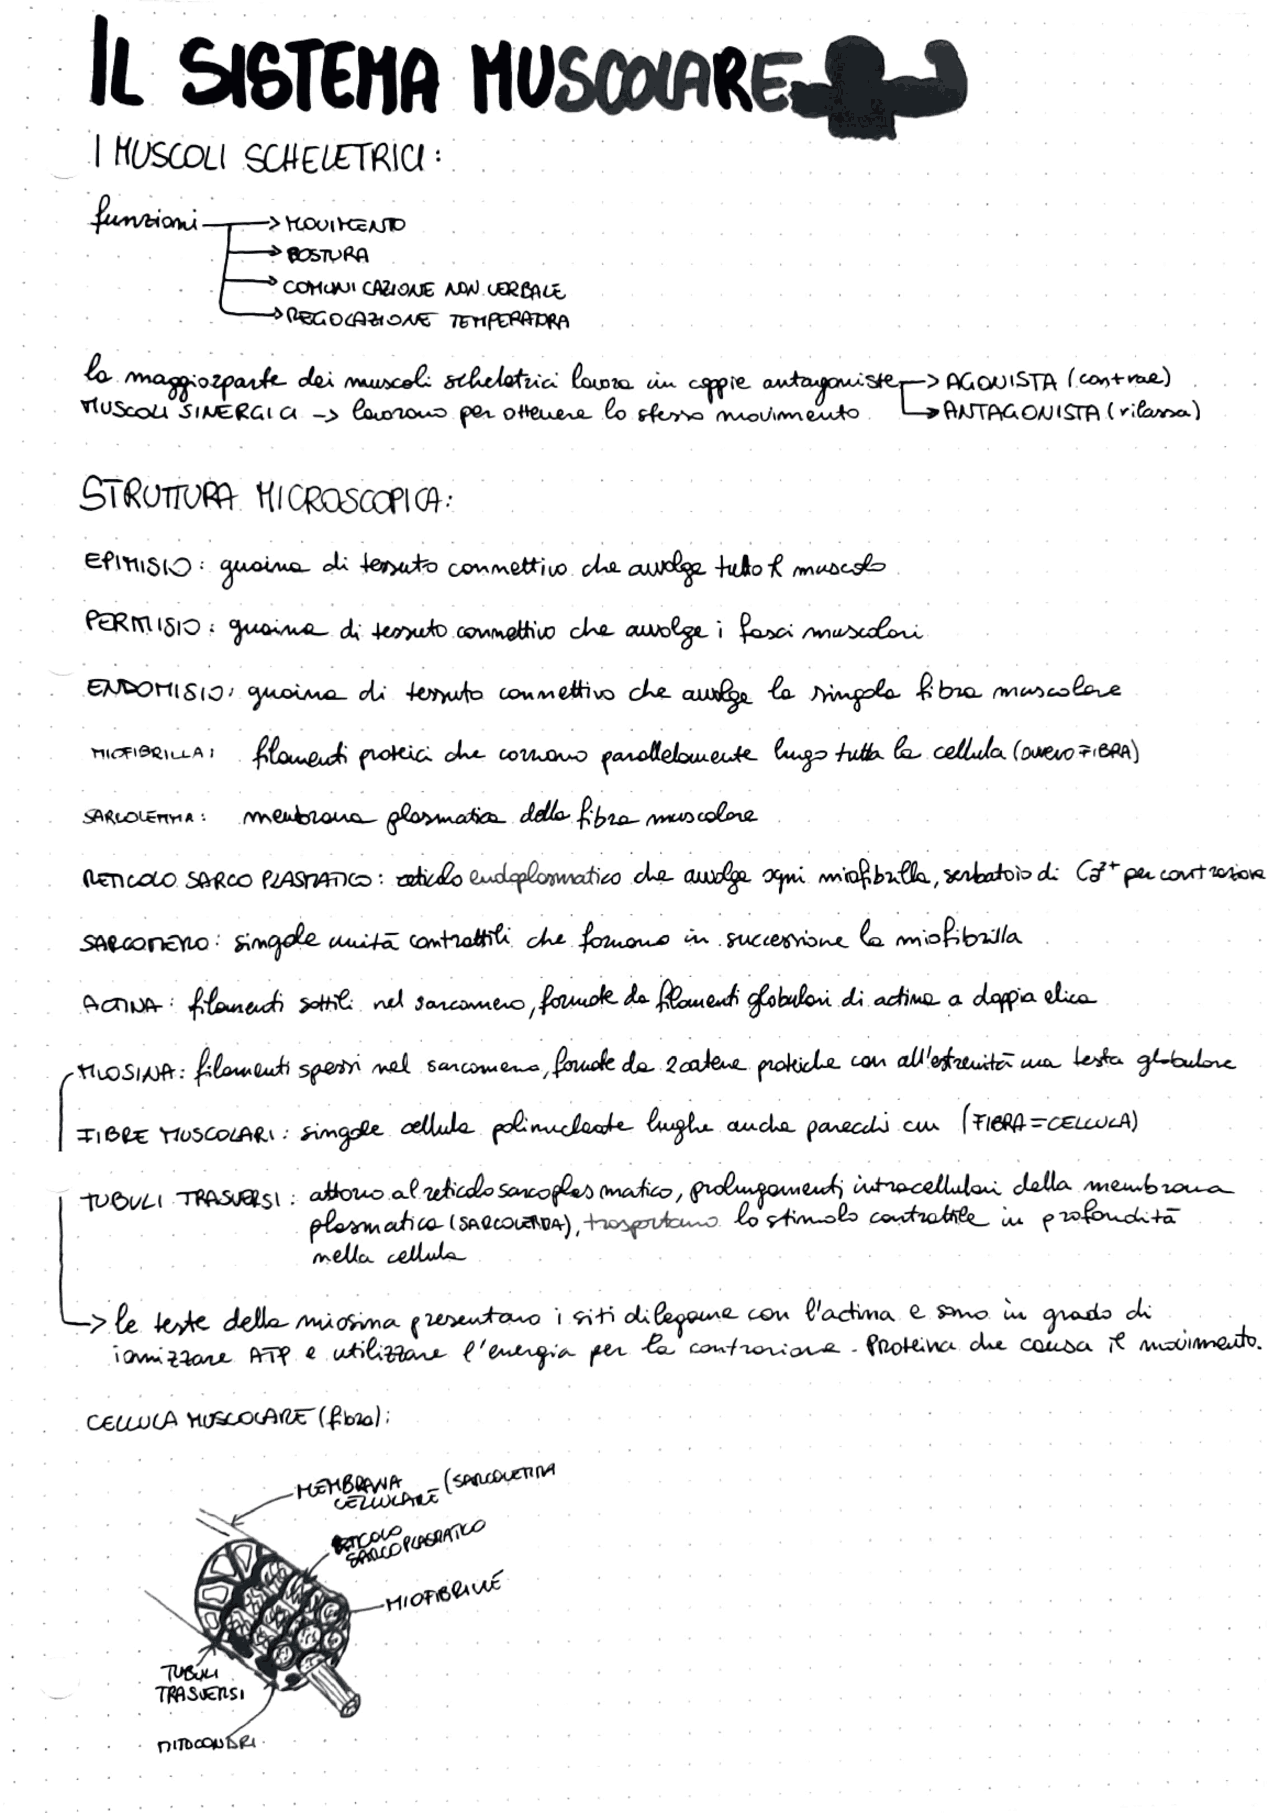 IL SISTEMA MUSCOLARE
I MUSCOLI SCHELETRICI:
funzioni → MOVIMENTO
→ POSTURA
→ COMUNICAZIONE NON VERBALE
→ REGOLAZIONE TEMPERATURA
la maggiorparte dei muscoli scheletrici lavora in coppie antagoniste → AGONISTA (contrae)
MUSCOLI SINERGICI → lavorano per ottenere lo stesso movimento → ANTAGONISTA (rilassa)
STRUTTURA MICROSCOPICA:
EPIMISIO: guaina di tessuto connettivo che avvolge tutto il muscolo
PERMISIO: guaina di tessuto connettivo che avvolge i fasci muscolari
ENDOMISIO: guaina di tessuto connettivo che avvolge la singola fibra muscolare
MIOFIBRILLA: filamenti proteici che corrono parallelamente lungo tutta la cellula (OVVERO FIBRA)
SARCOLEMMA: membrana plasmatica della fibra muscolare
RETICOLO SARCOPLASMATICO: reticolo endoplasmatico che avvolge ogni miofibrilla, serbatoio di Ca²⁺ per contrazione
SARCOMERO: singole unità contrattili che formano in successione la miofibrilla
ACTINA: filamenti sottili nel sarcomero, formate da filamenti globulari di actina a doppia elica
MIOSINA: filamenti spessi nel sarcomero, formate da 2 catene proteiche con all'estremità una testa globulare
FIBRE MUSCOLARI: singole cellule polinucleate lunghe anche parecchi cm (FIBRA = CELLULA)
TUBULI TRASVERSI: attorno al reticolo sarcoplasmatico, prolungamenti intracellulari della membrana
plasmatica (SARCOLEMMA), trasportano lo stimolo contrattile in profondità
nella cellula
→ le teste della miosina presentano i siti di legame con l'actina e sono in grado di
ionizzare ATP e utilizzare l'energia per la contrazione. Proteina che causa il movimento.
CELLULA MUSCOLARE (fibra):
MEMBRANA (SARCOLEMMA
CELLULARE
RETICOLO
SARCOPLASMATICO
MIOFIBRILLE
TUBULI
TRASVERSI
MITOCONDRI